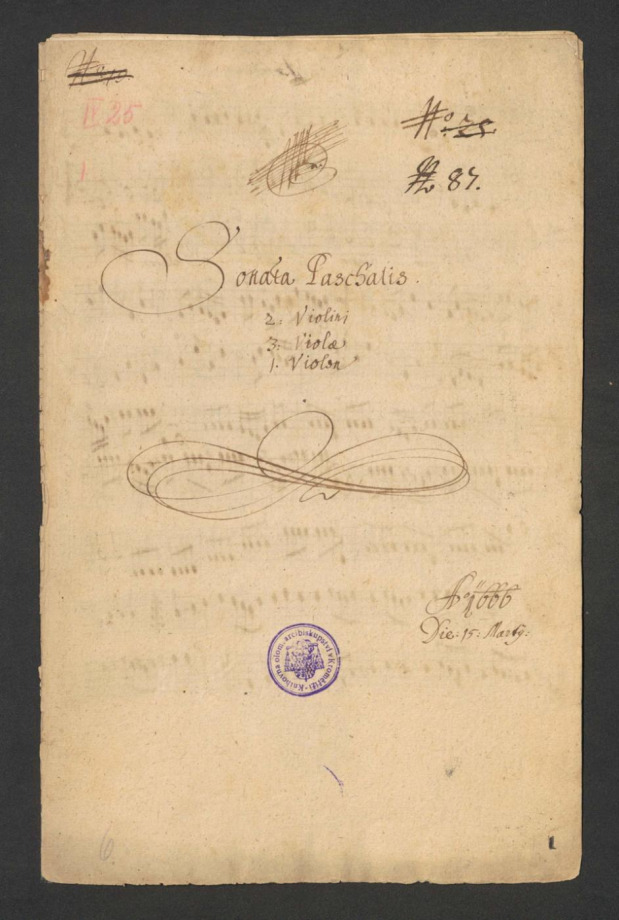 IV 25
1
No. 25.
No 87.
Sonata Paschalis.
2: Violini
3: Violæ
1. Violon
Ao 1666
Die: 15: Martÿ:
Knihovna olom. arcibiskupství v Kroměříži
6
1